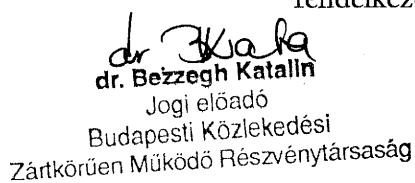 rendelkez
dr. Bezzegh Katalin
Jogi előadó
Budapesti Közlekedési
Zártkörűen Működő Részvénytársaság